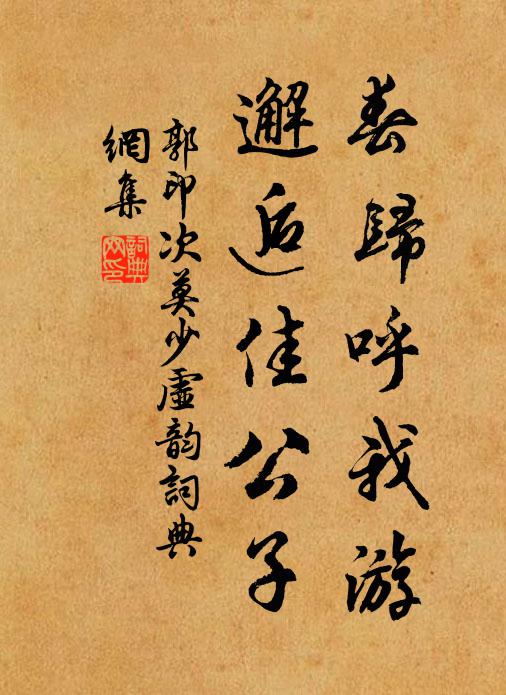 春歸呼我游
邂逅佳公子
郭印次莫少虛韵詞典
網集
詞典
网印